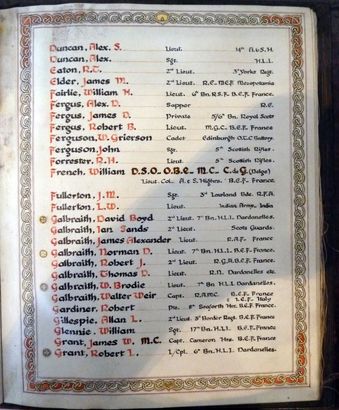 Duncan, Alex. S. Lieut. 14th A.&S.H.
Duncan, Alex. Sgt. H.L.I.
Eaton, R.T. 2nd Lieut. 3rd Yorks Regt.
Elder, James M. 2nd Lieut. R.E. M.E.F. Mesopotamia
Fairlie, William H. Lieut. 6th Bn. R.S.F. B.E.F. France
Fergus, Alex. D. Sapper R.E.
Fergus, James D. Private 5/6th Bn. Royal Scots
Fergus, Robert B. Lieut. M.G.C. B.E.F. France
Ferguson, W. Grierson Cadet Edinburgh O.T.C. Battery
Ferguson, John Sgt. 5th Scottish Rifles.
Forrester, R.H. Lieut. 5th Scottish Rifles.
French, William D.S.O. O.B.E. M.C. C. de G. (Belge)
Lieut. Col. A. & S. Highrs. B.E.F. France
Fullerton, J.M. Sgt. 3rd Lowland Bde. R.F.A.
Fullerton, L.W. Lieut. Indian Army, India
Galbraith, David Boyd 2nd Lieut. 7th Bn. H.L.I. Dardanelles.
Galbraith, Ian Sands 2nd Lieut. Scots Guards.
Galbraith, James Alexander Lieut. R.A.F. France
Galbraith, Norman D. Lieut. 7th Bn. H.L.I. B.E.F. France
Galbraith, Robert J. 2nd Lieut. R.G.A. B.E.F. France
Galbraith, Thomas D. Lieut. R.N. Dardanelles etc.
Galbraith, W. Brodie Lieut. 7th Bn. H.L.I. Dardanelles.
Galbraith, Walter Weir Capt. R.A.M.C. B.E.F. France & I.E.F. Italy
Gardiner, Robert Pte. 8th Seaforth Hrs. B.E.F. France
Gillespie, Allan L. 2nd Lieut. 3rd Border Regt. B.E.F. France
Glennie, William Sgt. 17th Bn. H.L.I. B.E.F. France
Grant, James W. M.C. Capt. Cameron Hrs. B.E.F. France
Grant, Robert L. L/Cpl. 6th Bn. H.L.I. Dardanelles.